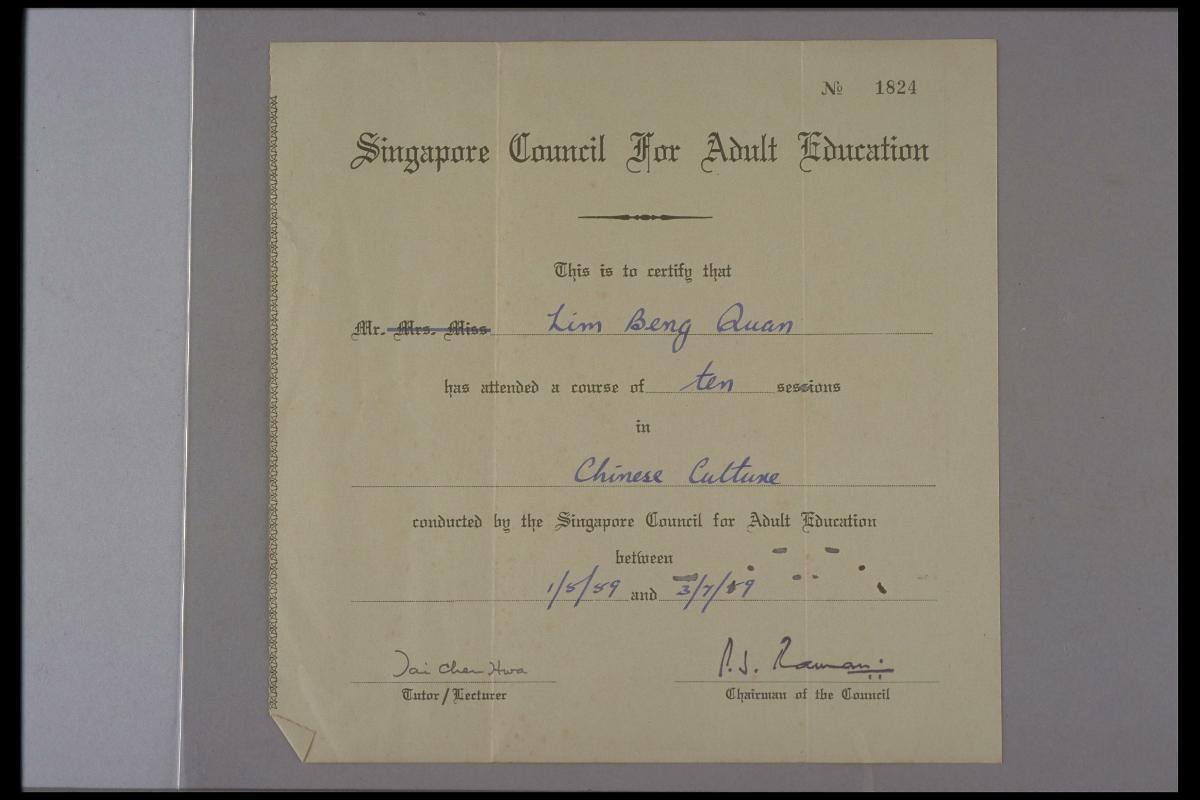 № 1824
Singapore Council For Adult Education
This is to certify that
Mr. Mrs. Miss Lim Beng Quan
has attended a course of ten sessions
in
Chinese Culture
conducted by the Singapore Council for Adult Education
between
1/5/59 and 3/7/59
Tai Chen Hwa P.S. Raman
Tutor/Lecturer Chairman of the Council